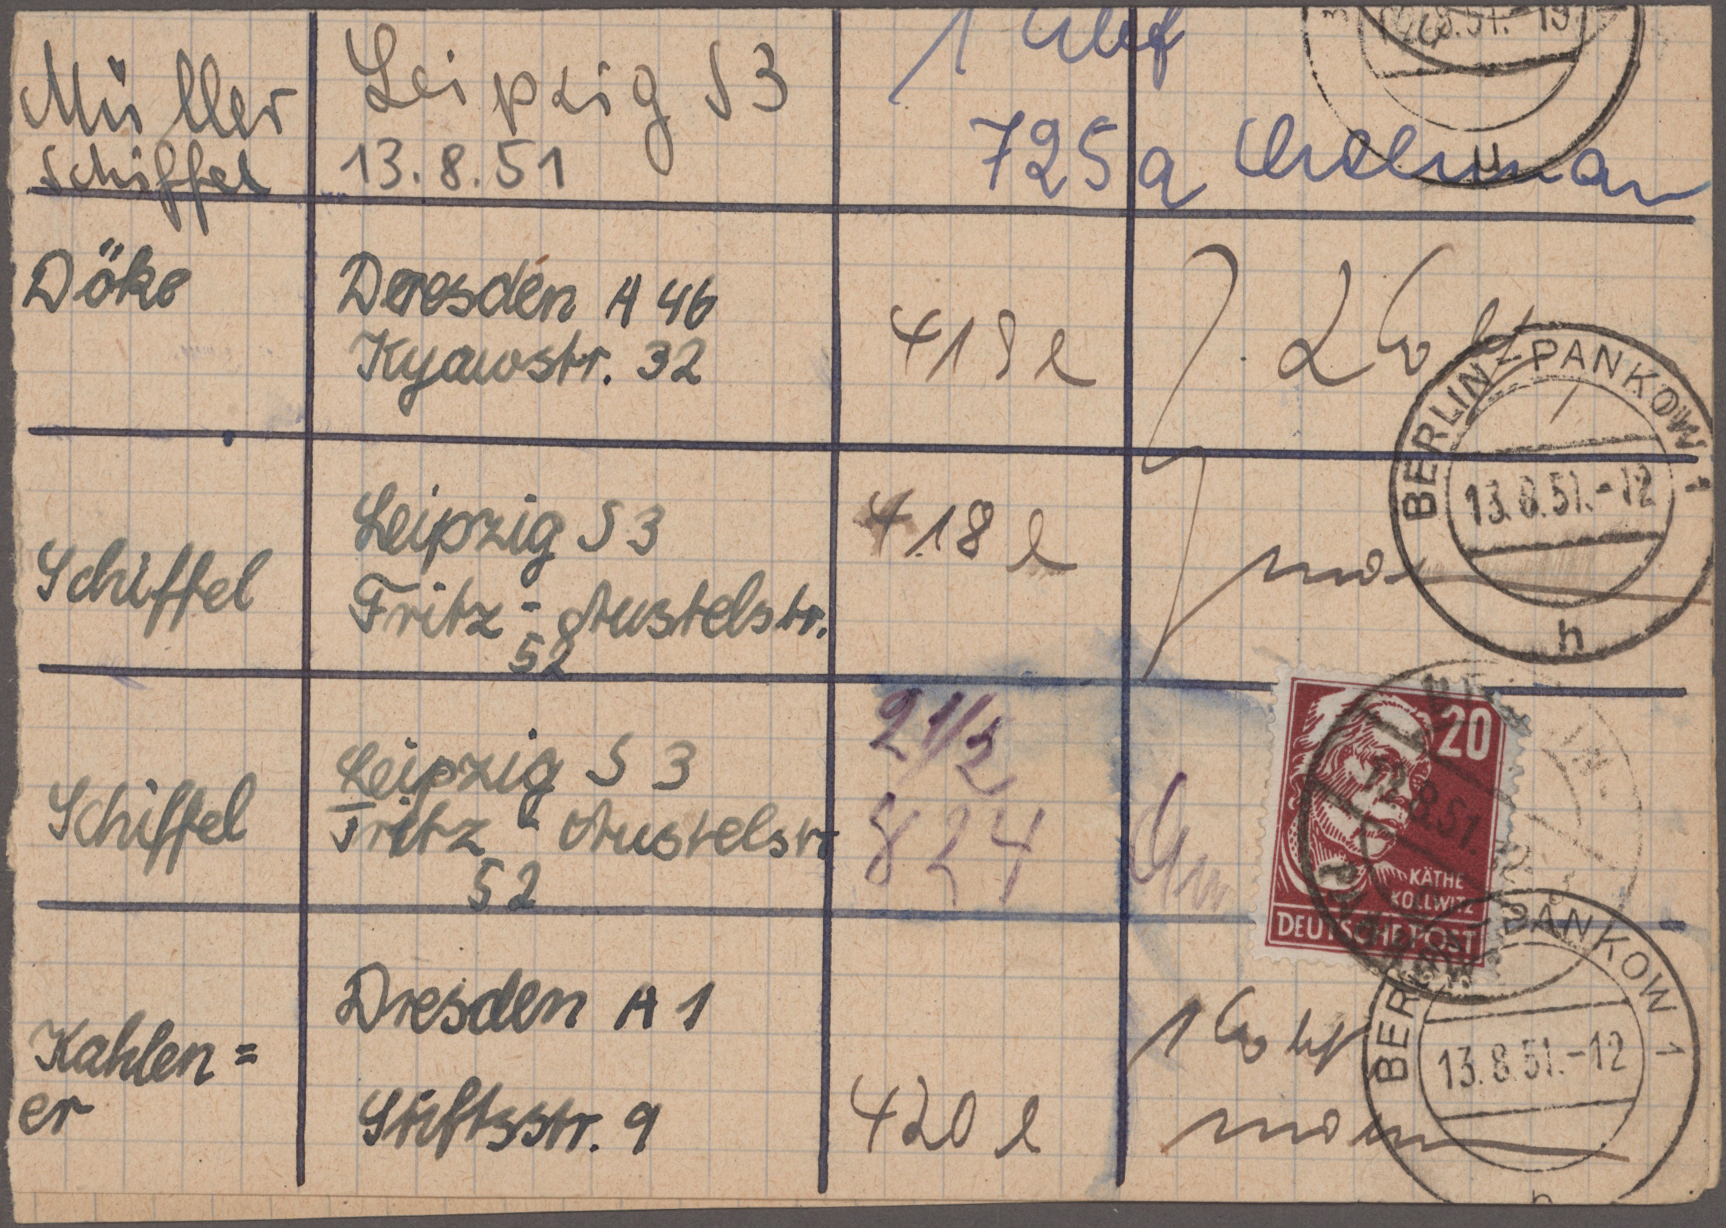 Müller
Schiffel
Leipzig S3
13.8.51
1
725 a
8.51.-19
u
Döke
Dresden A 46
Kyawstr. 32
418 l
BERLIN-PANKOW 1
13.8.51.-12
h
Schiffel
Leipzig S 3
Fritz-Austelstr.
52
418 l
Schiffel
Leipzig S 3
Fritz-Austelstr
52
21/2
824
20
KÄTHE
KOLLWITZ
DEUTSCHE POST
8.51
Kahlen=
er
Dresden A 1
Stiftsstr. 9
420 l
1
PANKOW 1
13.8.51.-12